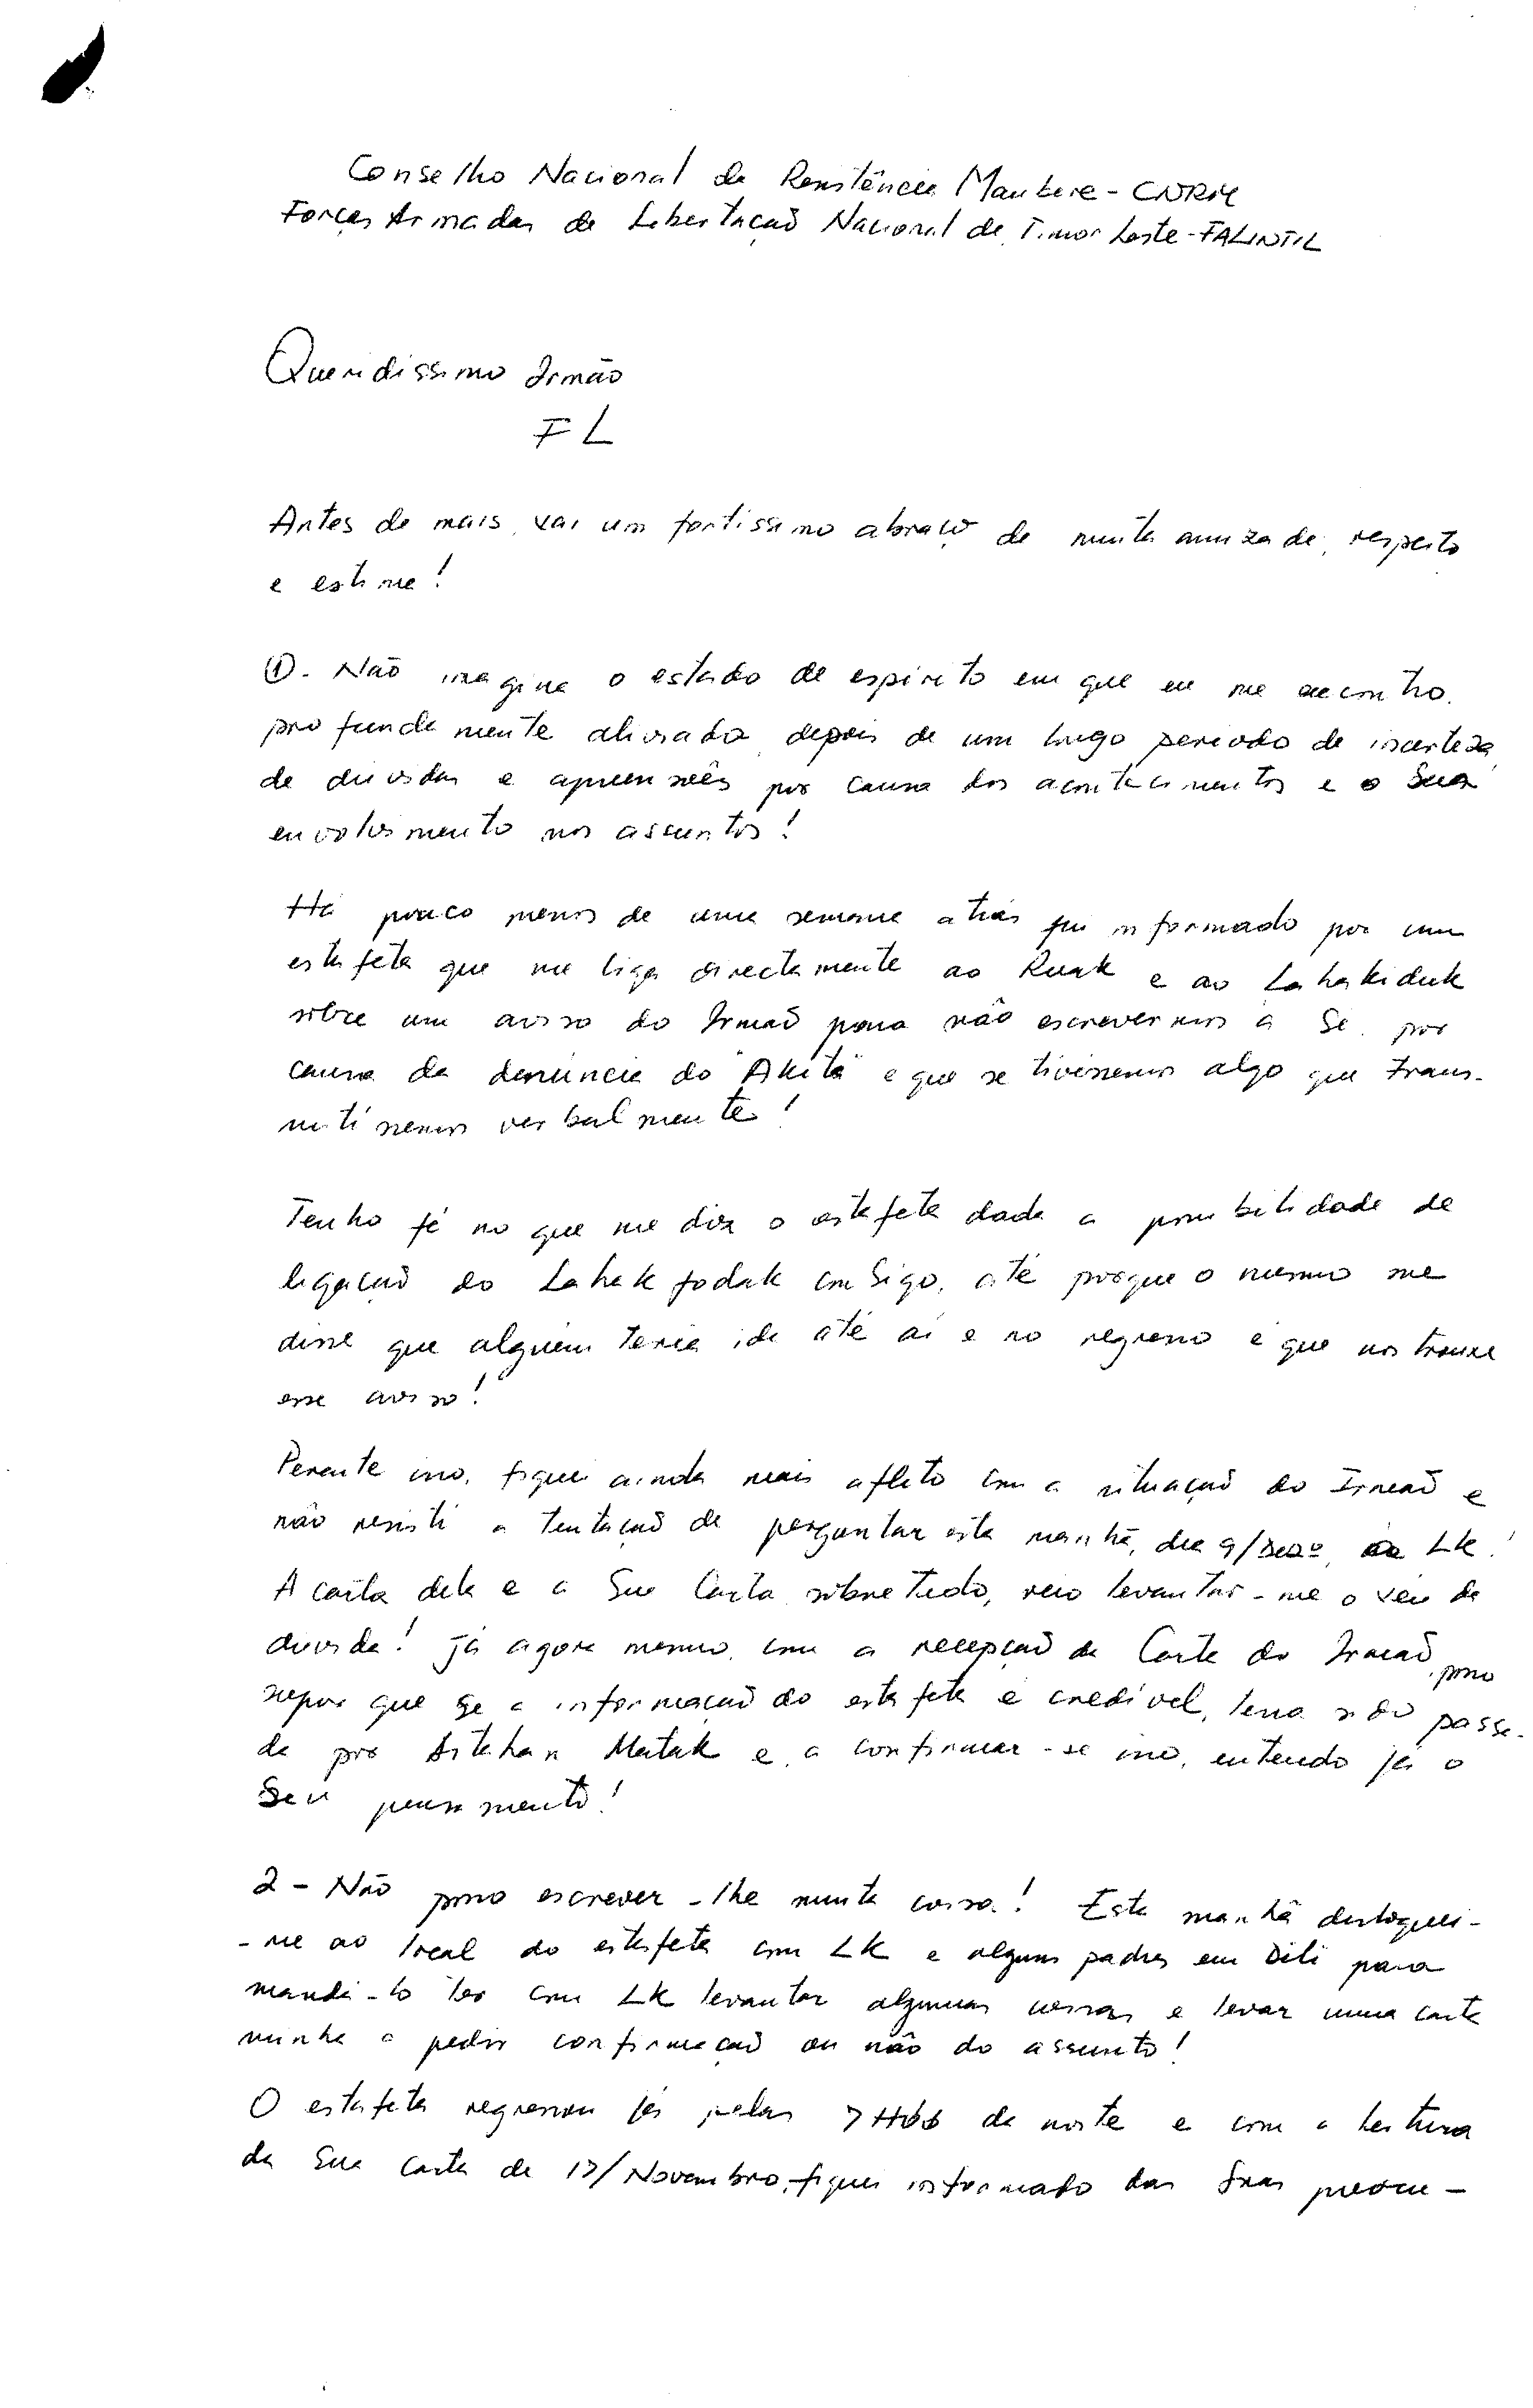 Conselho Nacional da Resistência Maubere - CNRM
Forças Armadas de Libertação Nacional de Timor Leste - FALINTIL
Queridissimo Irmão
FL
Antes de mais, vai um fortissimo abraço de muita amizade, respeito
e estima!
①. Não imagina o estado de espirito em que eu me encontro.
profundamente aliviado depois de um longo periodo de incerteza,
de duvidas e apreensões por causa dos acontecimentos e o Seu
envolvimento nos assuntos!
Há pouco menos de uma semana atrás fui informado por um
estafeta que me liga directamente ao Ruak e ao Lahakiduk
sobre um aviso do Irmaõ para não escrevermos a Si, por
causa da denúncia do "Akita" e que se tivessemos algo que trans-
mitissemos verbalmente!
Tenho fé no que me diz o estafeta dada a possibilidade de
ligaçaõ do Lahak fodak conSigo, até porque o mesmo me
disse que alguém teria ido até aí e no regresso é que nos trouxe
esse aviso!
Perante isso, fiquei ainda mais aflito com a situaçaõ do Irmaõ e
não resisti a tentaçaõ de perguntar esta manhã, dia 9/Dezº, ao LK!
A carta dele e a Sua Carta sobretudo, veio levantar-me o véu da
duvida! Já agora mesmo, com a recepçaõ da Carta do Irmaõ, posso
supor que se a informaçaõ do estafeta é credível, teria sido passa-
da por Sitahan Matak e, a confirmar-se isso, entendo já o
Seu pensamento!
2 - Não posso escrever-lhe muita coisa! Esta manhã desloquei-
-me ao local do estafeta com LK e alguns padres em Dili para
mandá-lo ter com LK levantar algumas coisas e levar uma carta
minha a pedir confirmaçaõ ou não do assunto!
O estafeta regressou já pelas 7H00 da noite e com a leitura
da Sua carta de 17/Novembro, fiquei informado das Suas preocu-